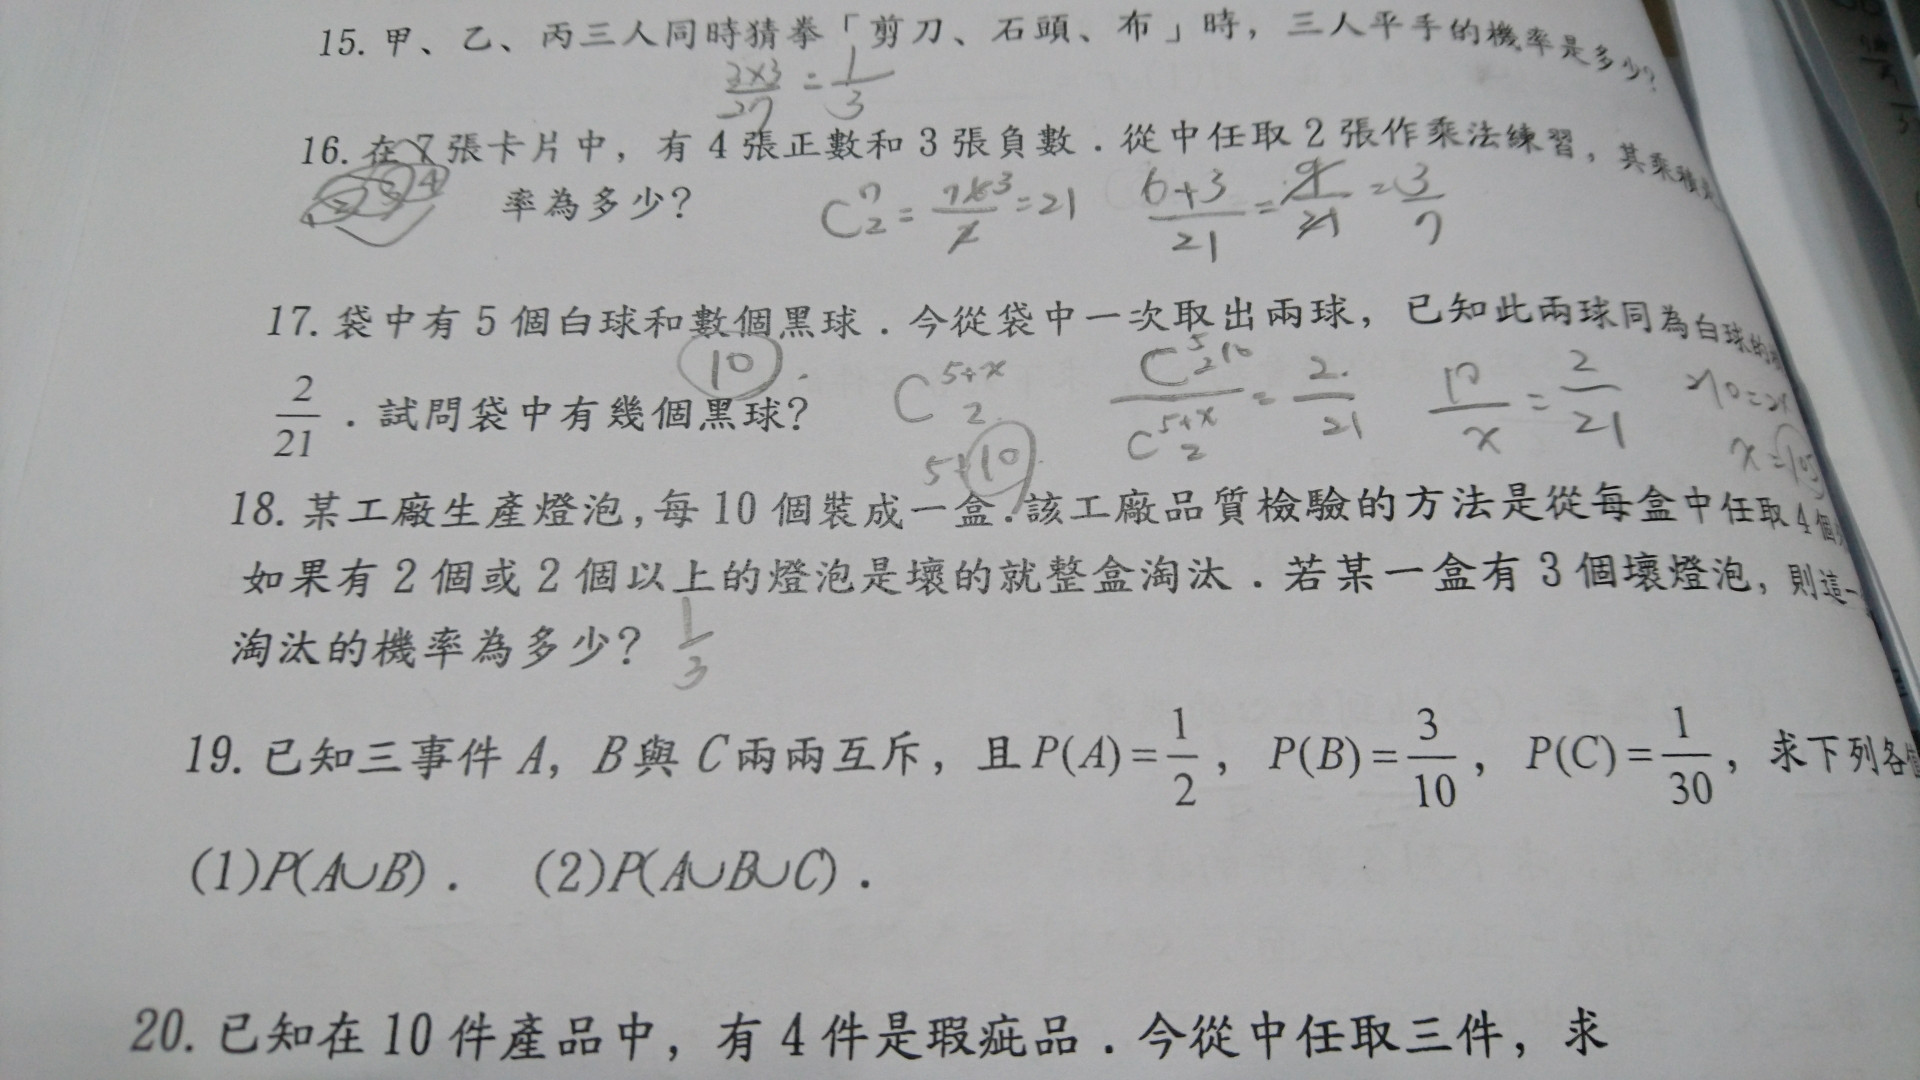 15. 甲、乙、丙三人同時猜拳「剪刀、石頭、布」時，三人平手的機率是多少？
3×3/27 = 1/3
16. 在7張卡片中，有4張正數和3張負數．從中任取2張作乘法練習，其乘積
率為多少？ C⁷₂ = 7×6³/2 = 21 6+3/21 = 9/21 = 3/7
17. 袋中有5個白球和數個黑球．今從袋中一次取出兩球，已知此兩球同為白球的
2/21．試問袋中有幾個黑球？
10 C⁵⁺ˣ₂ C⁵₂ 10 / C⁵⁺ˣ₂ = 2/21 10/x = 2/21
5+10 x=105
18. 某工廠生產燈泡，每10個裝成一盒．該工廠品質檢驗的方法是從每盒中任取4個
如果有2個或2個以上的燈泡是壞的就整盒淘汰．若某一盒有3個壞燈泡，則這一
淘汰的機率為多少？ 1/3
19. 已知三事件A，B與C兩兩互斥，且P(A)=1/2，P(B)=3/10，P(C)=1/30，求下列各
(1)P(A∪B)． (2)P(A∪B∪C)．
20. 已知在10件產品中，有4件是瑕疵品．今從中任取三件，求